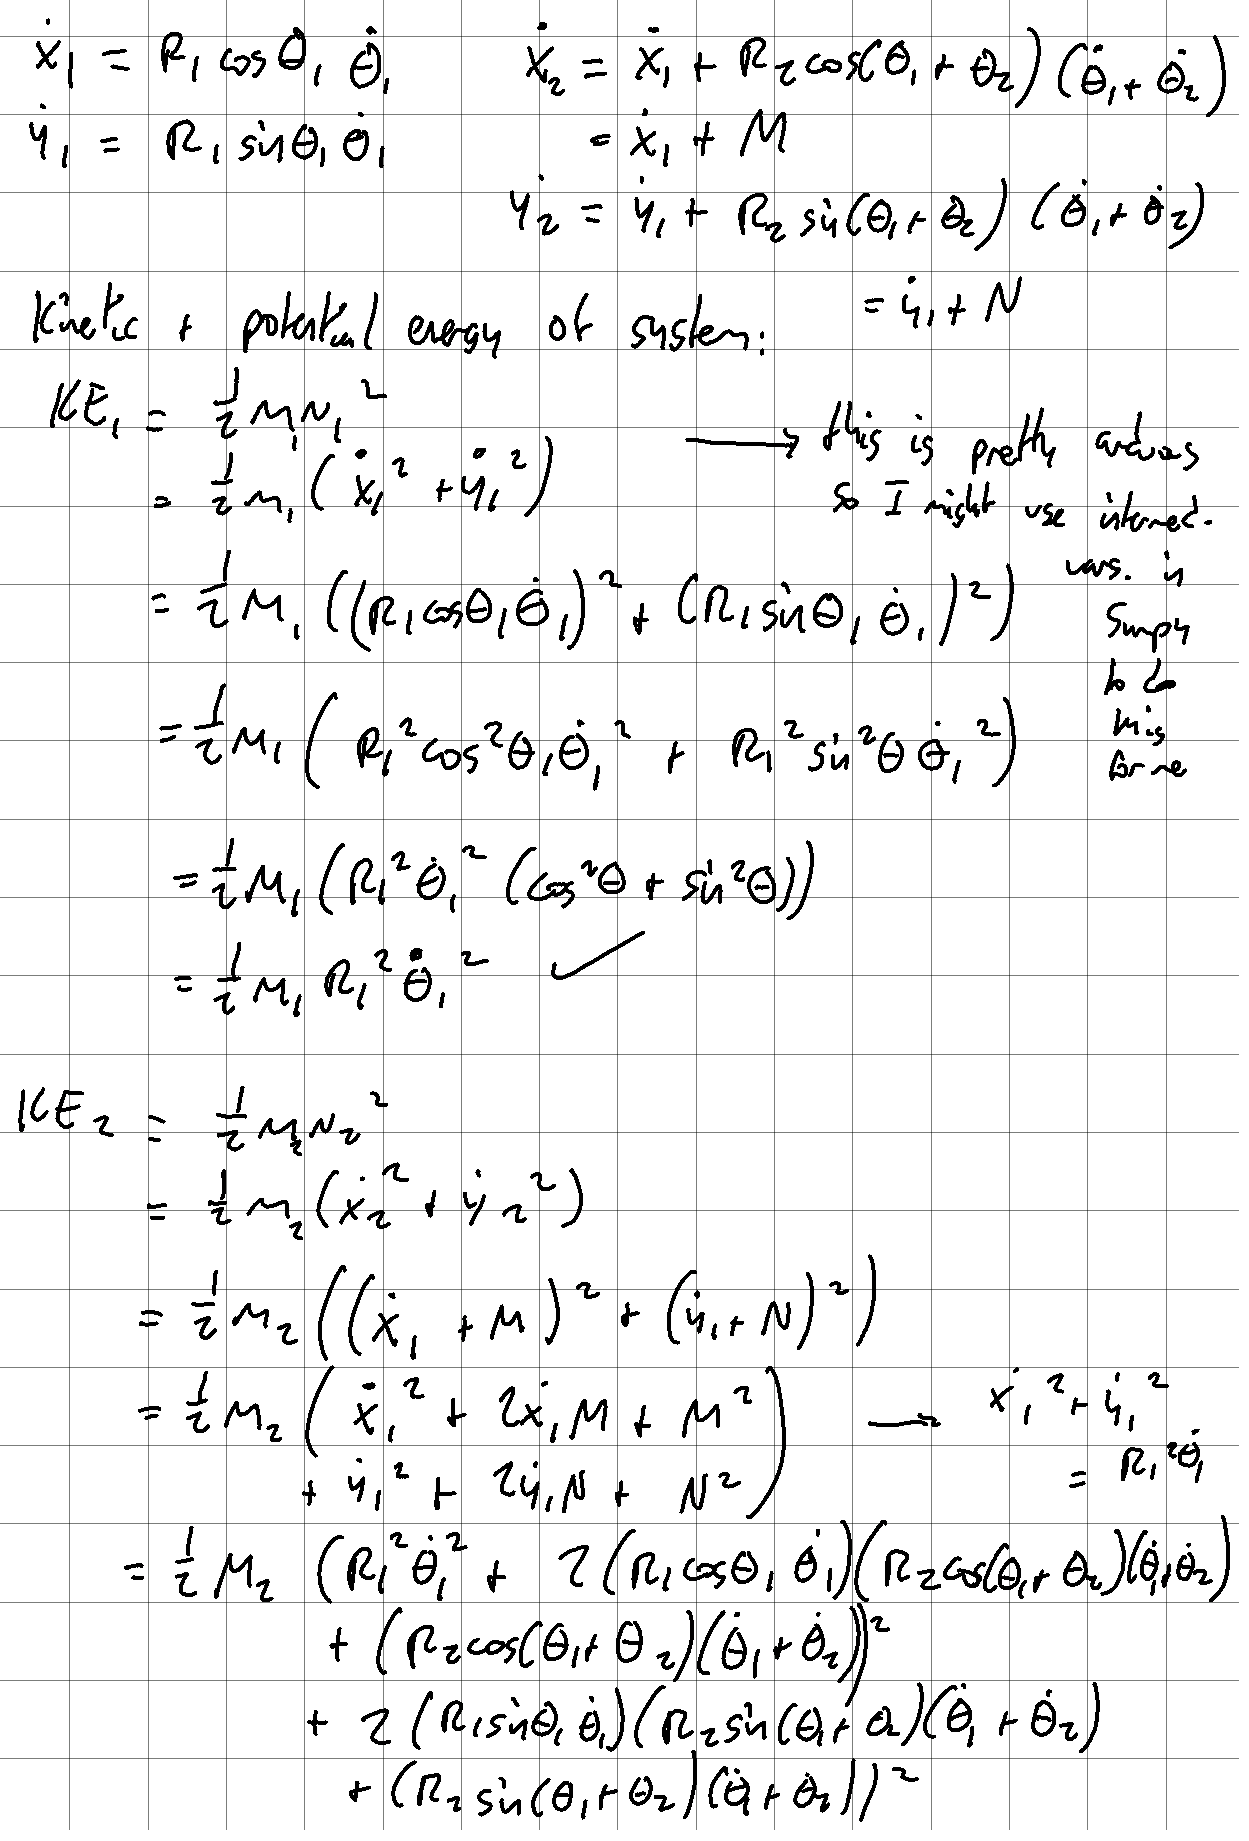 ẋ₁ = R₁cosθ₁ θ̇₁
ẏ₁ = R₁sinθ₁ θ̇₁
ẋ₂ = ẋ₁ + R₂cos(θ₁ + θ₂)(θ̇₁ + θ̇₂)
= ẋ₁ + M
ẏ₂ = ẏ₁ + R₂ sin(θ₁ + θ₂) (θ̇₁ + θ̇₂)
= ẏ₁ + N
Kinetic + potential energy of system:
KE₁ = ½ m₁v₁²
= ½ m₁ (ẋ₁² + ẏ₁²)
→ this is pretty arduous
so I might use intermed.
vars. in
Simpy
to do
this
for me
= ½ m₁ ((R₁cosθ₁θ̇₁)² + (R₁sinθ₁ θ̇₁)²)
= ½ m₁ (R₁²cos²θ₁θ̇₁² + R₁²sin²θ θ̇₁²)
= ½ m₁ (R₁²θ̇₁² (cos²θ + sin²θ))
= ½ m₁ R₁² θ̇₁² ✓
KE₂ = ½ m₂v₂²
= ½ m₂ (ẋ₂² + ẏ₂²)
= ½ m₂ ((ẋ₁ + M)² + (ẏ₁ + N)²)
= ½ m₂ (ẋ₁² + 2ẋ₁M + M²
+ ẏ₁² + 2ẏ₁N + N²)
→ ẋ₁² + ẏ₁²
= R₁²θ̇₁
= ½ m₂ (R₁²θ̇₁² + 2(R₁cosθ₁ θ̇₁)(R₂cos(θ₁ + θ₂)(θ̇₁+θ̇₂)
+ (R₂cos(θ₁ + θ₂)(θ̇₁ + θ̇₂))²
+ 2(R₁sinθ₁ θ̇₁)(R₂sin(θ₁ + θ₂)(θ̇₁ + θ̇₂)
+ (R₂ sin(θ₁ + θ₂)(θ̇₁ + θ̇₂))²